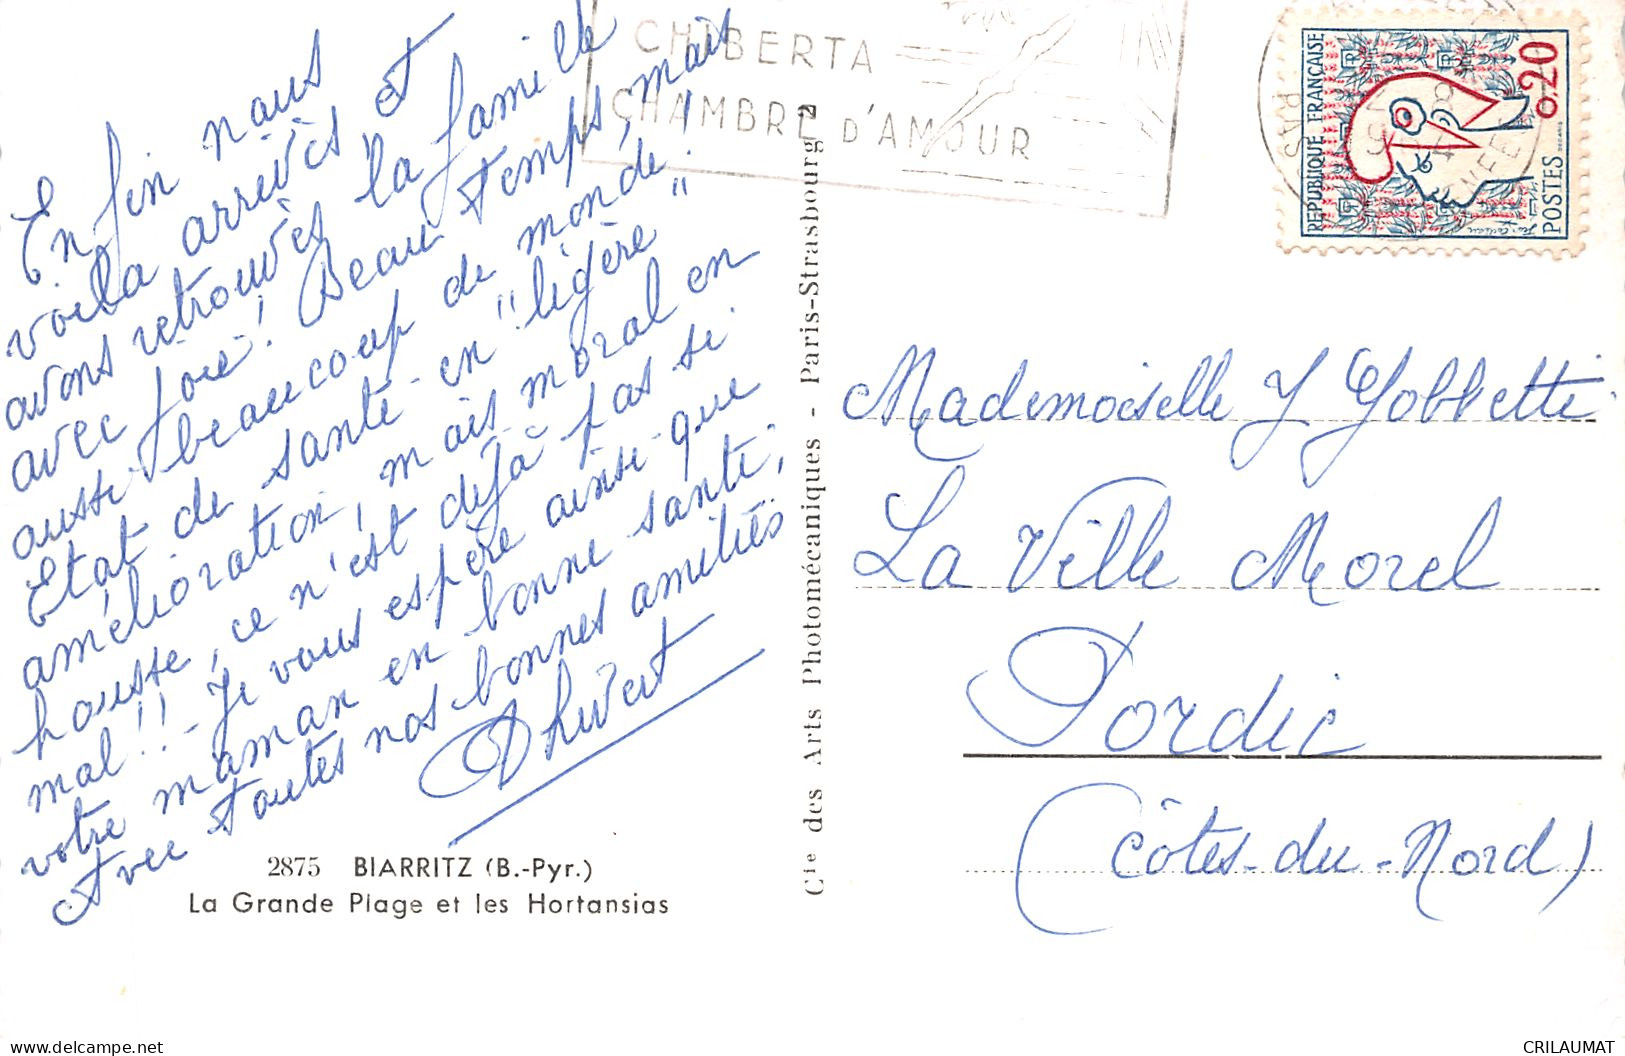 Enfin nous
voila arrivés et
avons retrouvés la famille
avec joie! Beau temps, mais
aussi beaucoup de monde!
Etat de santé en "légère"
amélioration, mais moral en
hausse, ce n'est déjà pas si
mal!! - Je vous espère ainsi que
votre maman en bonne santé,
Avec toutes nos bonnes amitiés
2875 BIARRITZ (B.-Pyr.)
La Grande Plage et les Hortansias
Cie des Arts Photomécaniques - Paris-Strasbourg
CHIBERTA
CHAMBRE D'AMOUR
REPUBLIQUE FRANÇAISE
0,20
POSTES
Mademoiselle Y Gobbette
La Ville Morel
Pordic
(Côtes-du-Nord)
www.delcampe.net
CRILAUMAT